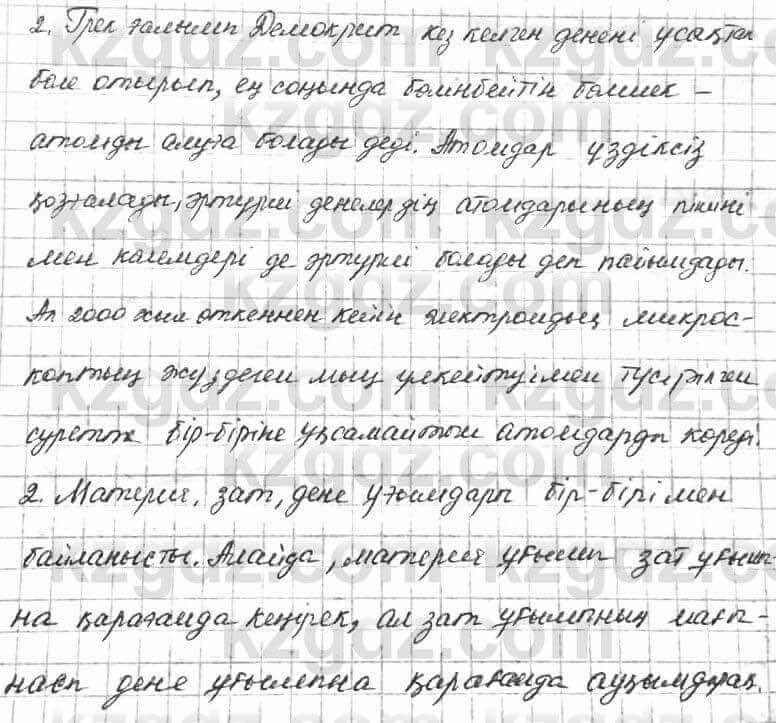 2. Грек ғалымы Демокрит кез келген денені ұсақтап
бөле отырып, ең соңында бөлінбейтін бөлшек –
атомды алуға болады деді. Атомдар үздіксіз
қозғалады, әртүрлі денелердің атомдарының пішіні
мен көлемдері де әртүрлі болады деп пайымдады.
Ал 2000 жыл өткеннен кейін электрондық микрос-
коптың жүздеген мың үлкейтуімен түсірілген
суретте бір-біріне ұқсамайтын атомдарды көреді.
2. Материя, зат, дене ұғымдары бір-бірімен
байланысты. Алайда, материя ұғымы зат ұғымы-
на қарағанда кеңірек, ал зат ұғымының мағы-
насы дене ұғымына қарағанда ауқымдырақ.
kzgdz.com